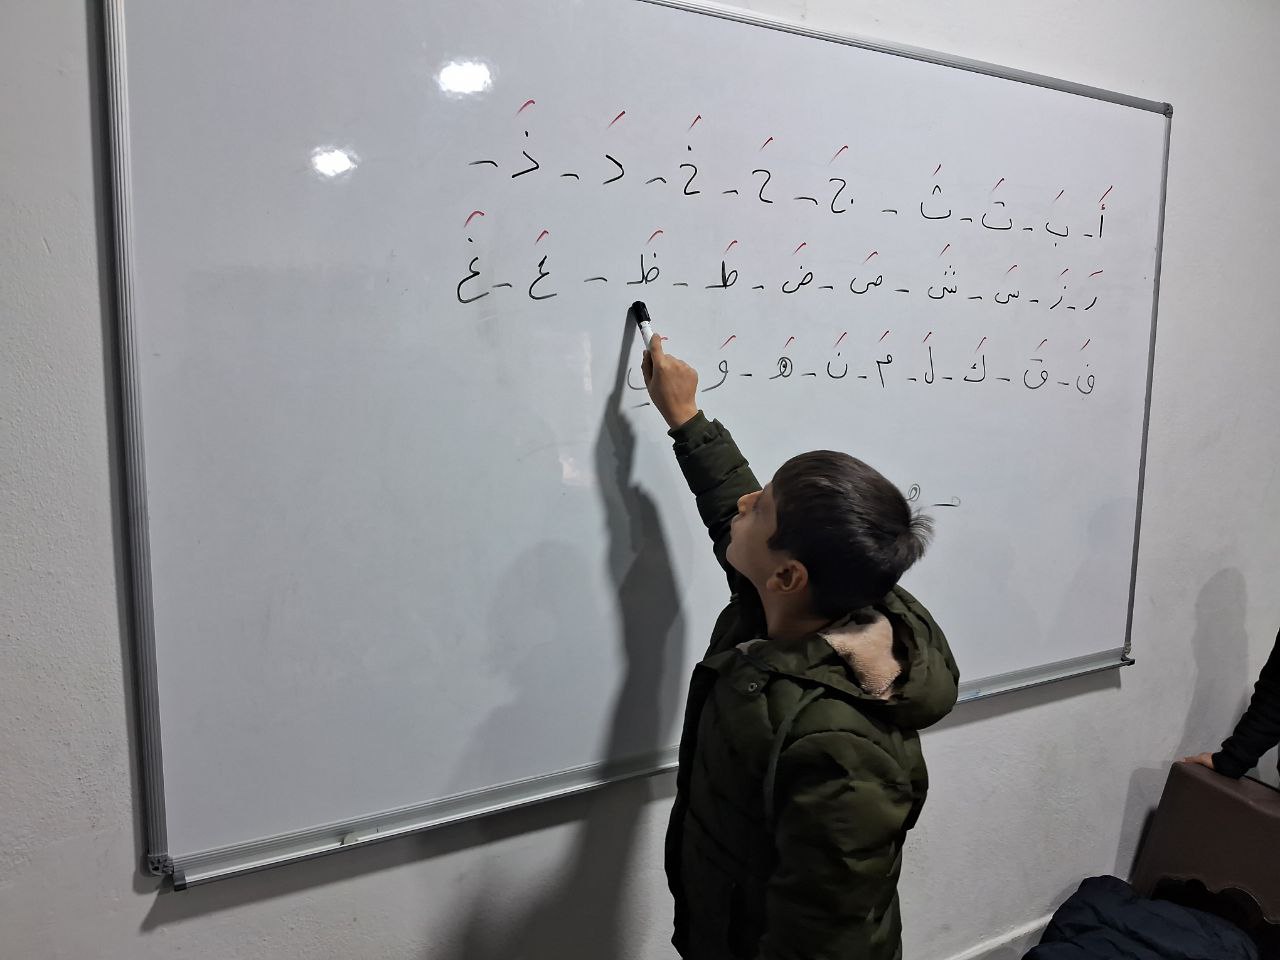 أَ - بَ - تَ - ثَ - جَ - حَ - خَ - دَ - ذَ -
رَ - زَ - سَ - شَ - صَ - ضَ - طَ - ظَ - عَ - غَ
فَ - قَ - كَ - لَ - مَ - نَ - هَ - وَ -